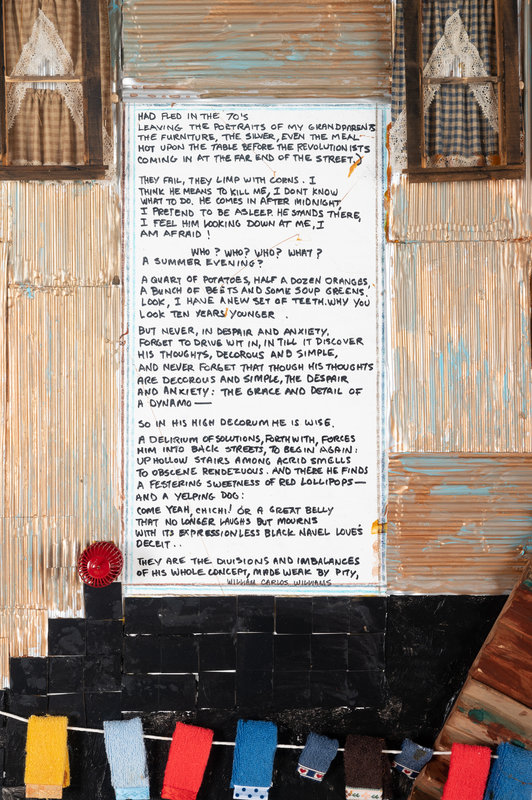 HAD FLED IN THE 70'S
LEAVING THE PORTRAITS OF MY GRANDPARENTS
THE FURNITURE, THE SILVER, EVEN THE MEAL
HOT UPON THE TABLE BEFORE THE REVOLUTIONISTS
COMING IN AT THE FAR END OF THE STREET.)
THEY FAIL, THEY LIMP WITH CORNS. I
THINK HE MEANS TO KILL ME, I DON'T KNOW
WHAT TO DO. HE COMES IN AFTER MIDNIGHT,
I PRETEND TO BE ASLEEP. HE STANDS THERE,
I FEEL HIM LOOKING DOWN AT ME, I
AM AFRAID!
WHO? WHO? WHO? WHAT?
A SUMMER EVENING?
A QUART OF POTATOES, HALF A DOZEN ORANGES,
A BUNCH OF BEETS AND SOME SOUP GREENS.
LOOK, I HAVE A NEW SET OF TEETH. WHY YOU
LOOK TEN YEARS YOUNGER.
BUT NEVER, IN DESPAIR AND ANXIETY,
FORGET TO DRIVE WIT IN, IN TILL IT DISCOVER
HIS THOUGHTS, DECOROUS AND SIMPLE,
AND NEVER FORGET THAT THOUGH HIS THOUGHTS
ARE DECOROUS AND SIMPLE, THE DESPAIR
AND ANXIETY: THE GRACE AND DETAIL OF
A DYNAMO—
SO IN HIS HIGH DECORUM HE IS WISE.
A DELIRIUM OF SOLUTIONS, FORTHWITH, FORCES
HIM INTO BACK STREETS, TO BEGIN AGAIN:
UP HOLLOW STAIRS AMONG ACRID SMELLS
TO OBSCENE RENDEZUOUS. AND THERE HE FINDS
A FESTERING SWEETNESS OF RED LOLLIPOPS—
AND A YELPING DOG:
COME YEAH, CHICHI! OR A GREAT BELLY
THAT NO LONGER LAUGHS BUT MOURNS
WITH ITS EXPRESSIONLESS BLACK NAVEL LOVE'S
DECEIT..
THEY ARE THE DIVISIONS AND IMBALANCES
OF HIS WHOLE CONCEPT, MADE WEAK BY PITY,
WILLIAM CARLOS WILLIAMS